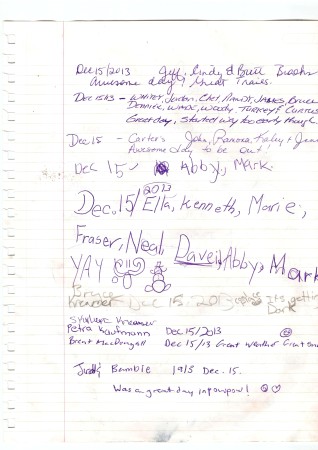 Dec 15/2013 Jeff, Cindy & Brett Brooks
Awesome day! Great Trails.
Dec 15/13 - Jordan, Chet, James, Bruce
Derrick, Wade, Woody Turkey, Curtis
Great day, Started way too early though
Dec 15 - Carter's John, Ramona, Kaley &
Awesome day to be out!
Dec 15 Abby, Mark.
Dec. 15/2013 Ella, Kenneth, Marie,
Fraser, Neal, Dave, Abby, Mark
YAY
Bryce Kreamer Dec 15, 2013 its getting Dark
Kreamer
Petra Kaufmann Dec 15/2013
Brent MacDougall Dec 15/13 Great Weather Great
Bamble 1915 Dec. 15.
Was a great day in powpow!